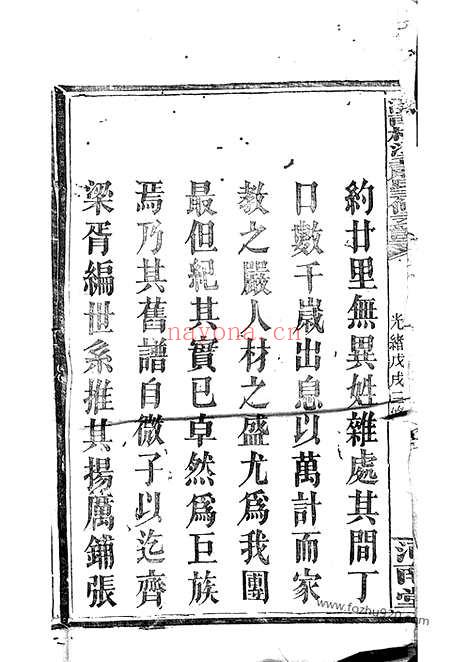 約廿里無異姓雜處其間丁
口數千歲出息以萬計而家
教之嚴人材之盛尤爲我團
最但紀其實已卓然爲巨族
焉乃其舊譜自微子以迄齊
梁胥編世系推其揚厲鋪張
光緒戊戌三修
濟南堂
nayona.cn
www.fozhu920.com